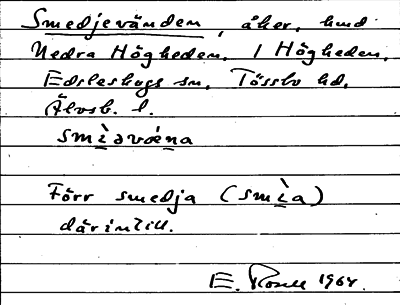 Smedjevänden, åker, hmd
Nedra Högheden, 1 Högheden,
Edsleskogs sn, Tössbo hd,
Älvsb. l.
smìavæ̀na
Förr smedja (smìa)
därintill.
E. Rosell 1964.